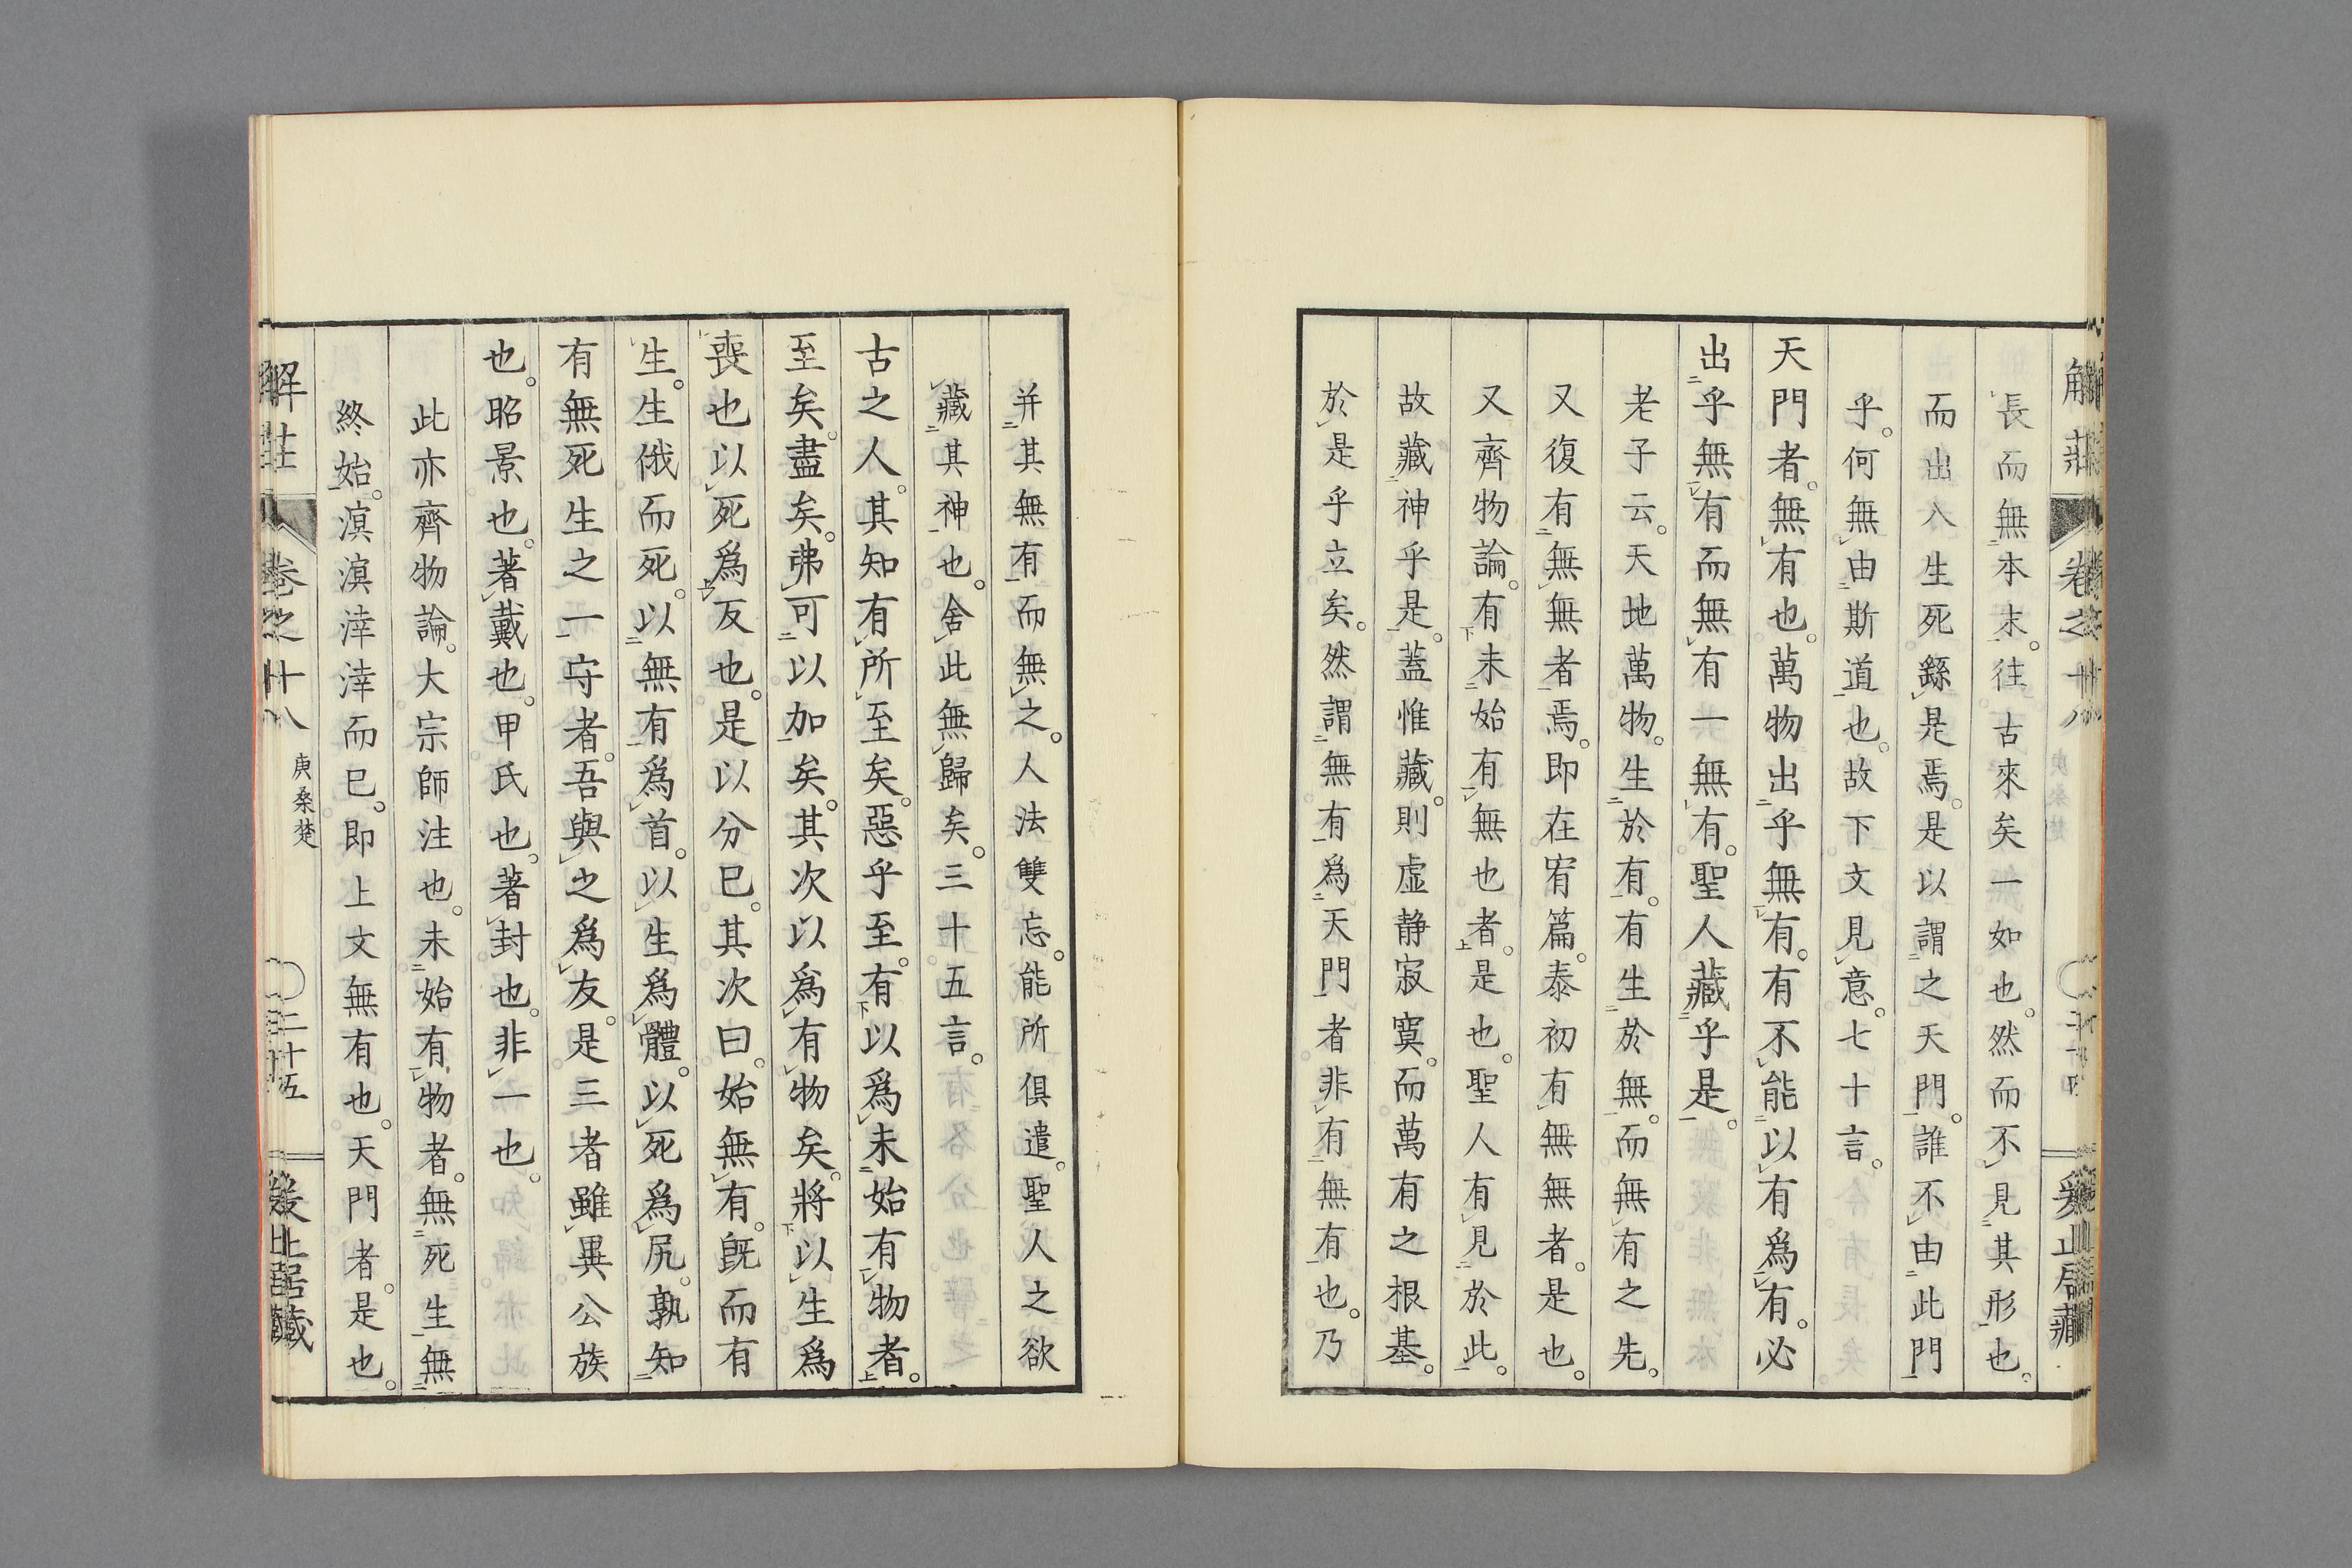 解莊 卷之十八
長而無本末。往古來矣一如也。然而不見其形也。
而出入生死繇是焉。是以謂之天門。誰不由此門
乎。何無由斯道也。故下文見意。七十言。
天門者。無有也。萬物出乎無有。有不能以有爲有。必
出乎無有而無有一無有。聖人藏乎是。
老子云。天地萬物。生於有。有生於無。而無有之先。
又復有無無者焉。即在宥篇。泰初有無無者。是也。
又齊物論。有未始有無也者。是也。聖人有見於此。
故藏神乎是。蓋惟藏。則虛静寂寞。而萬有之根基。
於是乎立矣。然謂無有爲天門者非有無有也。乃
并其無有而無之。人法雙忘。能所俱遣。聖人之欲
藏其神也。舍此無歸矣。三十五言。
古之人。其知有所至矣。惡乎至。有以爲未始有物者。
至矣。盡矣。弗可以加矣。其次以爲有物矣。將以生爲
喪也以死爲反也。是以分已。其次曰。始無有。旣而有
生。生俄而死。以無有爲首。以生爲體。以死爲尻。孰知
有無死生之一守者。吾與之爲友。是三者雖異公族
也。昭景也。著戴也。甲氏也。著封也。非一也。
此亦齊物論。大宗師注也。未始有物者。無死生無
終始。溟溟涬涬而已。即上文無有也。天門者。是也。
解莊 卷之十八 庚桑楚 二十五